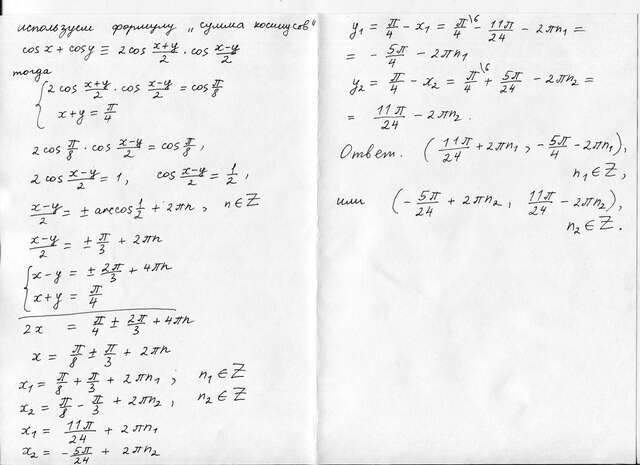 используем формулу „сумма косинусов"
cos x + cos y ≡ 2 cos (x+y)/2 · cos (x−y)/2
тогда
{ 2 cos (x+y)/2 · cos (x−y)/2 = cos π/8
x+y = π/4
2 cos π/8 · cos (x−y)/2 = cos π/8 ,
2 cos (x−y)/2 = 1, cos (x−y)/2 = 1/2 ,
(x−y)/2 = ± arccos 1/2 + 2πn, n ∈ Z
(x−y)/2 = ± π/3 + 2πn
{ x−y = ± 2π/3 + 4πn
x+y = π/4
2x = π/4 ± 2π/3 + 4πn
x = π/8 ± π/3 + 2πn
x₁ = π/8 + π/3 + 2πn₁ ; n₁ ∈ Z
x₂ = π/8 − π/3 + 2πn₂ , n₂ ∈ Z
x₁ = 11π/24 + 2πn₁
x₂ = −5π/24 + 2πn₂
y₁ = π/4 − x₁ = π/4 \6 − 11π/24 − 2πn₁ =
= − 5π/4 − 2πn₁
y₂ = π/4 − x₂ = π/4 \6 + 5π/24 − 2πn₂ =
= 11π/24 − 2πn₂ .
Ответ. (11π/24 + 2πn₁ ; −5π/4 − 2πn₁),
n₁ ∈ Z,
или (−5π/24 + 2πn₂ , 11π/24 − 2πn₂),
n₂ ∈ Z.